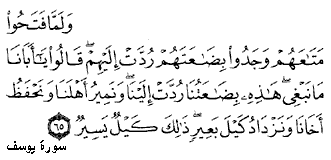 وَلَمَّا فَتَحُوا۟
مَتَـٰعَهُمْ وَجَدُوا۟ بِضَـٰعَتَهُمْ رُدَّتْ إِلَيْهِمْ ۖ قَالُوا۟ يَـٰٓأَبَانَا
مَا نَبْغِى ۖ هَـٰذِهِۦ بِضَـٰعَتُنَا رُدَّتْ إِلَيْنَا ۖ وَنَمِيرُ أَهْلَنَا وَنَحْفَظُ
أَخَانَا وَنَزْدَادُ كَيْلَ بَعِيرٍ ۖ ذَٰلِكَ كَيْلٌ يَسِيرٌ ﴿٦٥﴾
سورة يوسف